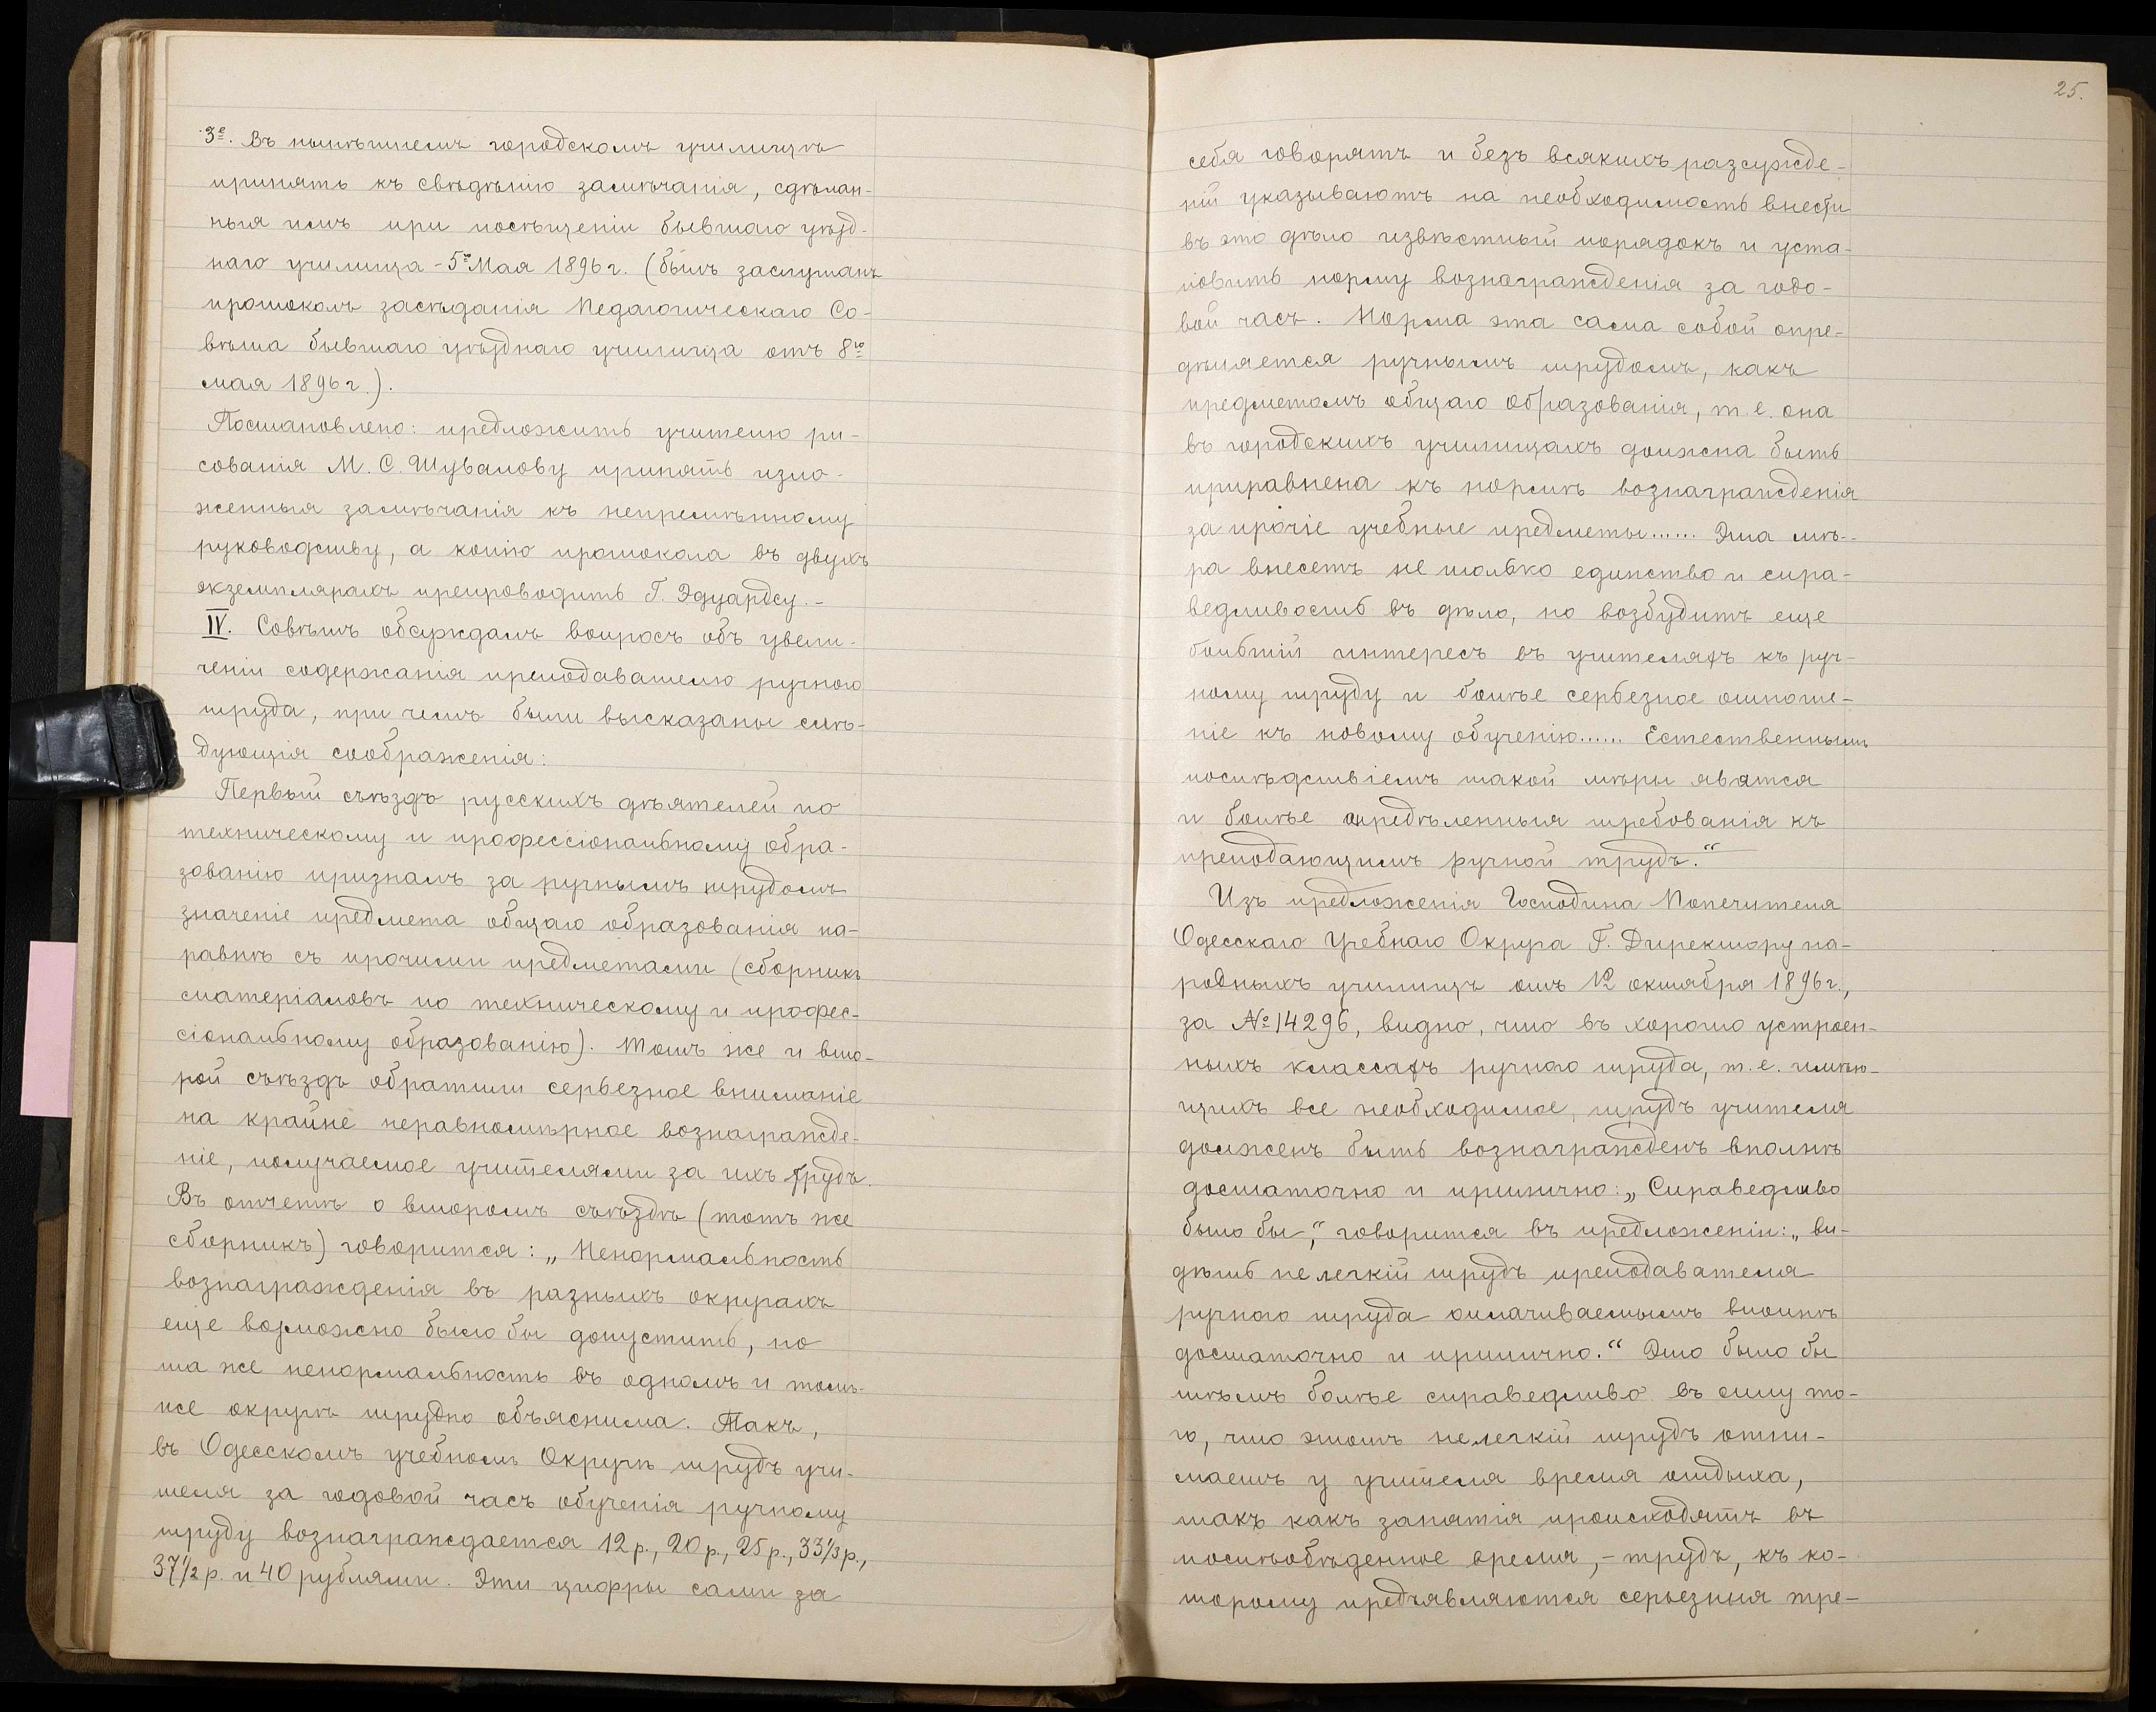 3е. Въ нынѣшнемъ городскомъ училищѣ
принять къ свѣдѣнію замѣчанія, сдѣлан-
ныя имъ при посѣщеніи бывшаго уѣзд-
наго училища - 5го Мая 1896 г. (былъ заслушанъ
протоколъ засѣданія Педагогическаго Со-
вѣта бывшаго уѣзднаго училища отъ 8го
мая 1896 г.).
Постановлено: предложить учителю ри-
сованія М. С. Шувалову принять изло-
женныя замѣчанія къ непремѣнному
руководству, а копію протокола въ двухъ
экземплярахъ препроводить Г. Эдуардсу. -
IV. Совѣтъ обсуждалъ вопросъ объ увели-
ченіи содержанія преподавателю ручного
труда, при чемъ были высказаны слѣ-
дующія соображенія:
Первый съѣздъ русскихъ дѣятелей по
техническому и профессіональному обра-
зованію призналъ за ручнымъ трудомъ
значеніе предмета общаго образованія на-
равнѣ съ прочими предметами (сборникъ
матеріаловъ по техническому и профес-
сіональному образованію). Тотъ же и вто-
рой съѣздъ обратили серьезное вниманіе
на крайне неравномѣрное вознагражде-
ніе, получаемое учителями за ихъ трудъ.
Въ отчетѣ о второмъ съѣздѣ (тотъ же
сборникъ) говорится: „Ненормальность
вознагражденія въ разныхъ округахъ
еще возможно было бы допустить, но
та же ненормальность въ одномъ и томъ-
же округѣ трудно объяснима. Такъ,
въ Одесскомъ учебномъ Округѣ трудъ учи-
теля за годовой часъ обученія ручному
труду вознаграждается 12 р., 20 р., 25 р., 33 1/3 р.,
37 1/2 р. и 40 рублями. Эти цифры сами за
25.
себя говорятъ и безъ всякихъ разсужде-
ній указываютъ на необходимость внести
въ это дѣло извѣстный порядокъ и уста-
новить норму вознагражденія за годо-
вой часъ. Норма эта сама собой опре-
дѣляется ручнымъ трудомъ, какъ
предметомъ общаго образованія, т. е. она
въ городскихъ училищахъ должна быть
приравнена къ нормѣ вознагражденія
за прочіе учебные предметы...... Эта мѣ-
ра внесетъ не только единство и спра-
ведливость въ дѣло, но возбудитъ еще
большій интересъ въ учителяхъ къ руч-
ному труду и болѣе серьезное отноше-
ніе къ новому обученію...... Естественнымъ
послѣдствіемъ такой мѣры явятся
и болѣе опредѣленныя требованія къ
преподающимъ ручной трудъ.“
Изъ предложенія Господина Попечителя
Одесскаго Учебнаго Округа Г. Директору на-
родныхъ училищъ отъ 12 октября 1896 г.,
за № 14296, видно, что въ хорошо устроен-
ныхъ классахъ ручного труда, т. е. имѣю-
щихъ все необходимое, трудъ учителя
долженъ быть вознагражденъ вполнѣ
достаточно и прилично: „Справедливо
было бы“, говорится въ предложеніи: „ви-
дѣть нелегкій трудъ преподавателя
ручного труда оплачиваемымъ вполнѣ
достаточно и прилично.“ Это было бы
тѣмъ болѣе справедливо въ силу то-
го, что этотъ нелегкій трудъ отни-
маетъ у учителя время отдыха,
такъ какъ занятія происходятъ въ
послѣобѣденное время, - трудъ, къ ко-
торому предъявляются серьезныя тре-